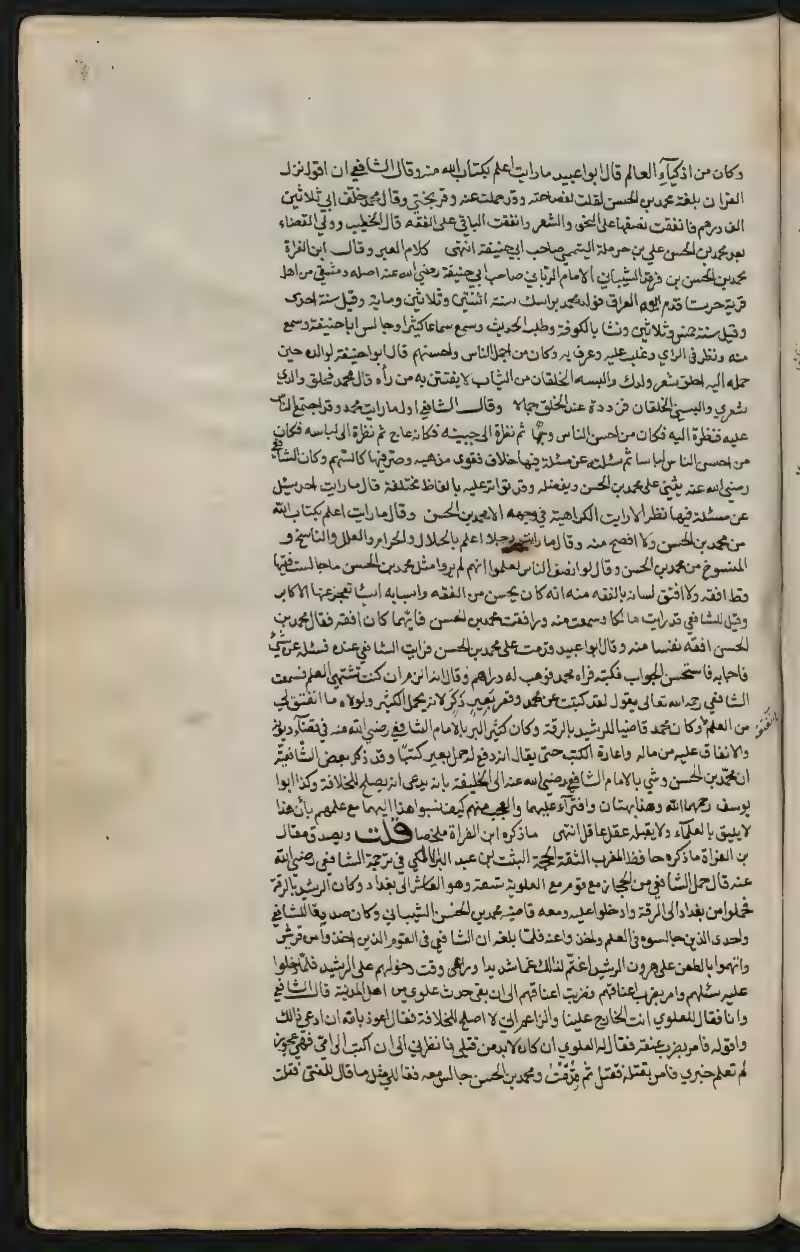 وكان من اذكيآء العالم قال ابوا عبيد ما رايت اعلم بكتاب الله منه وقال الشافعي ان اقول نزل
القران بلغة محمد بن الحسن لقلت لفصاحته وقد حملت عنه وقر بختي وقال محمد خلف ابي ثلاثين
الف درهم فانفقت نصفها على النحو والشعر وانفقت الباقي على الفقه قال الخطيب وولي القضاء
بعد محمد بن الحسن علي بن حرملة التيمي صاحب ابي حنيفة انتهى كلام العبر وقال ابن الفراة
محمد بن الحسن بن فرقد الشيباني الامام الرباني صاحب ابي حنيفة رضي الله عنه اصله دمشقي من اهل
قرية حرستا قدم ابوه العراق فولد محمد بواسط سنة اثنتين وثلاثين وماية وقيل سنة احدى
وقيل سنة خمس وثلاثين ونشا بالكوفة وطلب الحديث وسمع سماعا كثيرا وجالس ابا حنيفة وسمع
منه ونظر في الراي وغلب عليه وعرف به وكان من اجمل الناس واحسنهم قال ابوا حنيفة لوالده حين
حمله اليه احلق شعر ولدك والبسه الخلقان من الثياب لا يفتتن به من رأه قال محمد فحلق والدي
شعري والبسني الخلقان فزددة عند الخلق جمالا وقال الشافعي اول ما رايت محمد وقد اجتمع الناس
عليه فنظرة اليه فكان من احسن الناس وجها ثم نظرة الى جبينه فكانه عاج ثم نظرة الى لباسه فكان
من احسن الناس لباسا ثم سئلته عن مسئلة فيها خلاف فقوى مذهبه ومر فيها كالسهم وكان الشافعي
رضي الله عنه يثني على محمد بن الحسن ويفضله وقد تواتر عليه بالفاظ مختلفة قال ما رايت احد سئل
عن مسئلة فيها نظر الا رايت الكراهية في وجهه الا محمد بن الحسن وقال ما رايت اعلم بكتاب الله
من محمد بن الحسن ولا افصح منه وقال ما رايت رجلا اعلم بالحلال والحرام والعلل والناسخ و
المنسوخ من محمد بن الحسن وقال لو انصف الناس لعلموا انهم لم يروا مثل محمد بن الحسن ما جالست فقيها
قط افقه ولا افتق لسانه بالفقه منه انه كان يحسن من الفقه واسبابه اشيا تعجز عنها الاكابر
وقيل للشافعي قد رايت مالكا وسمعت منه ورافقت محمد بن الحسن فايهما كان افقه فقال محمد بن
الحسن افقه نفسا منه وقال ابوا عبيد قدمت على محمد بن الحسن فرايت الشافعي عنده فسئله عن شئ
فاجابه فاستحسن الجواب فكتبه فراه محمد فوهب له دراهم وقال له الزم ان كنت تشتهي العلم فسمعت
الشافعي رحمه الله تعالى يقول لقد كتبت عن محمد وقر بعير ذكر لانه يحمل الكثير ولولاه ما انفتق لي
من العلم ما انفتق وكان محمد قاضيا للرشيد بالرقة وكان كثير البر بالامام الشافعي رضي الله عنه في قضآء ديونه
والانفاق عليه من ماله واعارة الكتب حتى يقال انه دفع له حمل بعير كتبا وقد ذكر بعض الشافعية
ان محمد بن الحسن وشي بالامام الشافعي رضي الله عنه الى الخليفة بانه يدعي انه يصلح للخلافة وكذا ابوا
يوسف رحمهما الله وهذا بهتان وافترآء عليهما والعجب منهم كيف نسبوا هذا اليهما مع علمهم بأن هذا
لا يليق بالعلمآء ولا يقبله عقل عاقل انتهى ما ذكره ابن الفراة ملخصا قلت ويصدق مقال
بن الفراة ما ذكره حافظ المغرب الثقة الحجة الثبت ابن عبد البر المالكي في ترجمة الشافعي رضي الله
عنه قال حمل الشافعي من الحجاز مع قوم مع العلوية تسعة وهو العاشر الى بغداد وكان الرشيد بالرقة
فحملوا من بغداد الى الرقة وادخلوا عليه ومعه قاضيه محمد بن الحسن الشيباني وكان صديقا للشافعي
واحدى الذين جالسوه في العلم واخذوا عنه فلما بلغه ان الشافعي في القوم الذين اخذوا من قريش
واتهموا بالطعن على هرون الرشيد اغتم لذلك غما شديدا وراعى وقت دخولهم على الرشيد فلما دخلوا
عليه سئلهم وامر بضرب اعناقهم فضربت اعناقهم الى ان بقي حدث علوي من اهل المدينة قال الشافعي
وانا فقال للعلوي انت الخارج علينا والزاعم اني لا اصلح للخلافة فقال اعوذ بالله ان ادعي ذلك
واقوله فامر بضرب عنقه فقال له العلوي ان كان لابد من قتلي فانظرني الى ان اكتب الى امي فهي عجوز
لم تعلم خبري فامر بقتله فقتل ثم قدمت ومحمد بن الحسن جالس معه فقال لي مثل ما قال للفتى فقلت